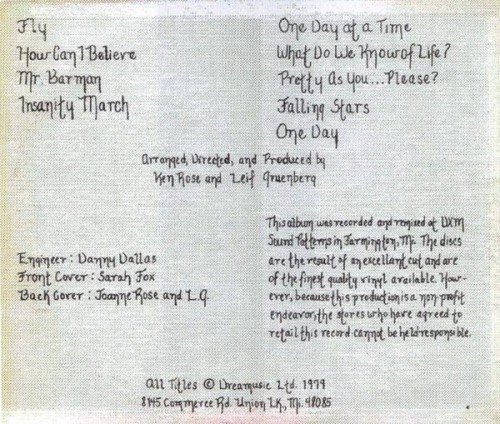 Fly
How Can I Believe
Mr. Barman
Insanity March
One Day at a Time
What Do We Know of Life?
Pretty As You...Please?
Falling Stars
One Day
Arranged, Directed, and Produced by
Ken Rose and Leif Gruenberg
Engineer: Danny Dallas
Front Cover: Sarah Fox
Back Cover: Joanne Rose and L.G.
This album was recorded and remixed at DXM
Sound Patterns in Farmington, Mi. The discs
are the result of an excellant cut and are
of the finest quality vinyl available. How-
ever, because this production is a non-profit
endeavor, the stores who have agreed to
retail this record cannot be held responsible.
All Titles © Dreamusic Ltd. 1979
8145 Commerce Rd. Union LK, Mi. 48085